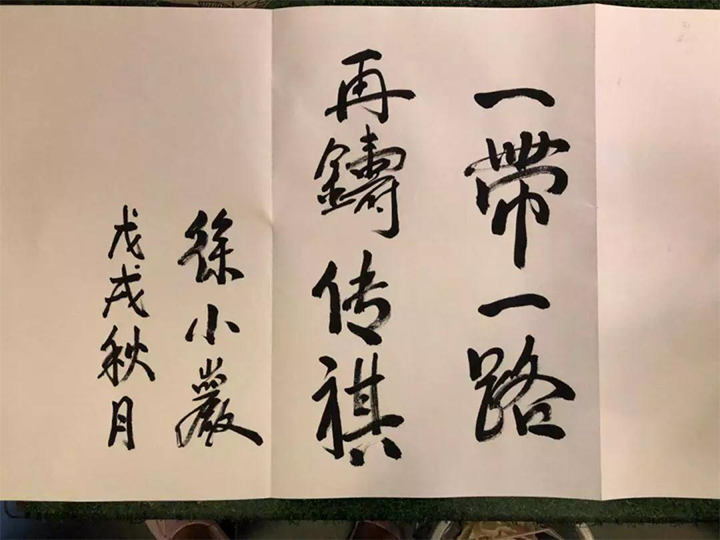 一帶一路
再鑄传祺
徐小巖
戊戌秋月